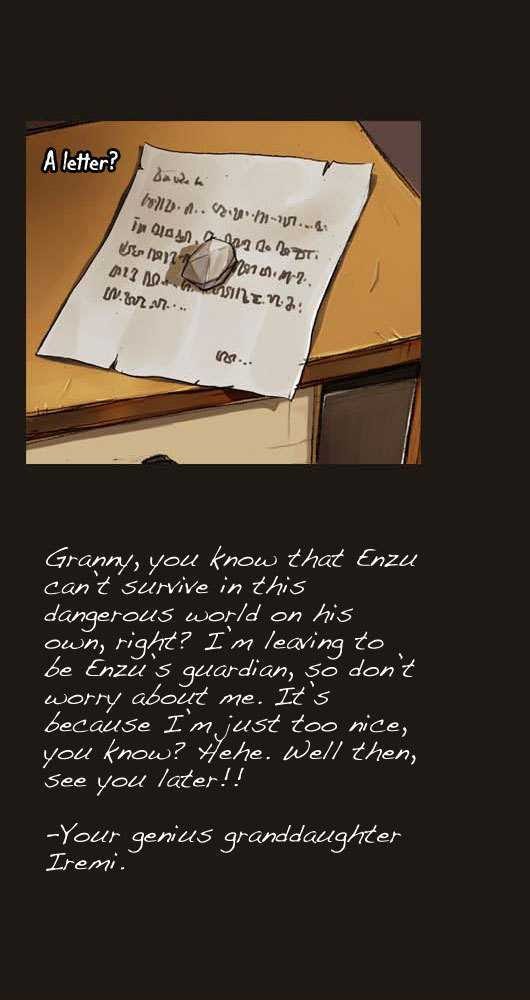 A letter?
Granny, you know that Enzu
can`t survive in this
dangerous world on his
own, right? I`m leaving to
be Enzu`s guardian, so don`t
worry about me. It`s
because I`m just too nice,
you know? Hehe. Well then,
see you later!!
-Your genius granddaughter
Iremi.